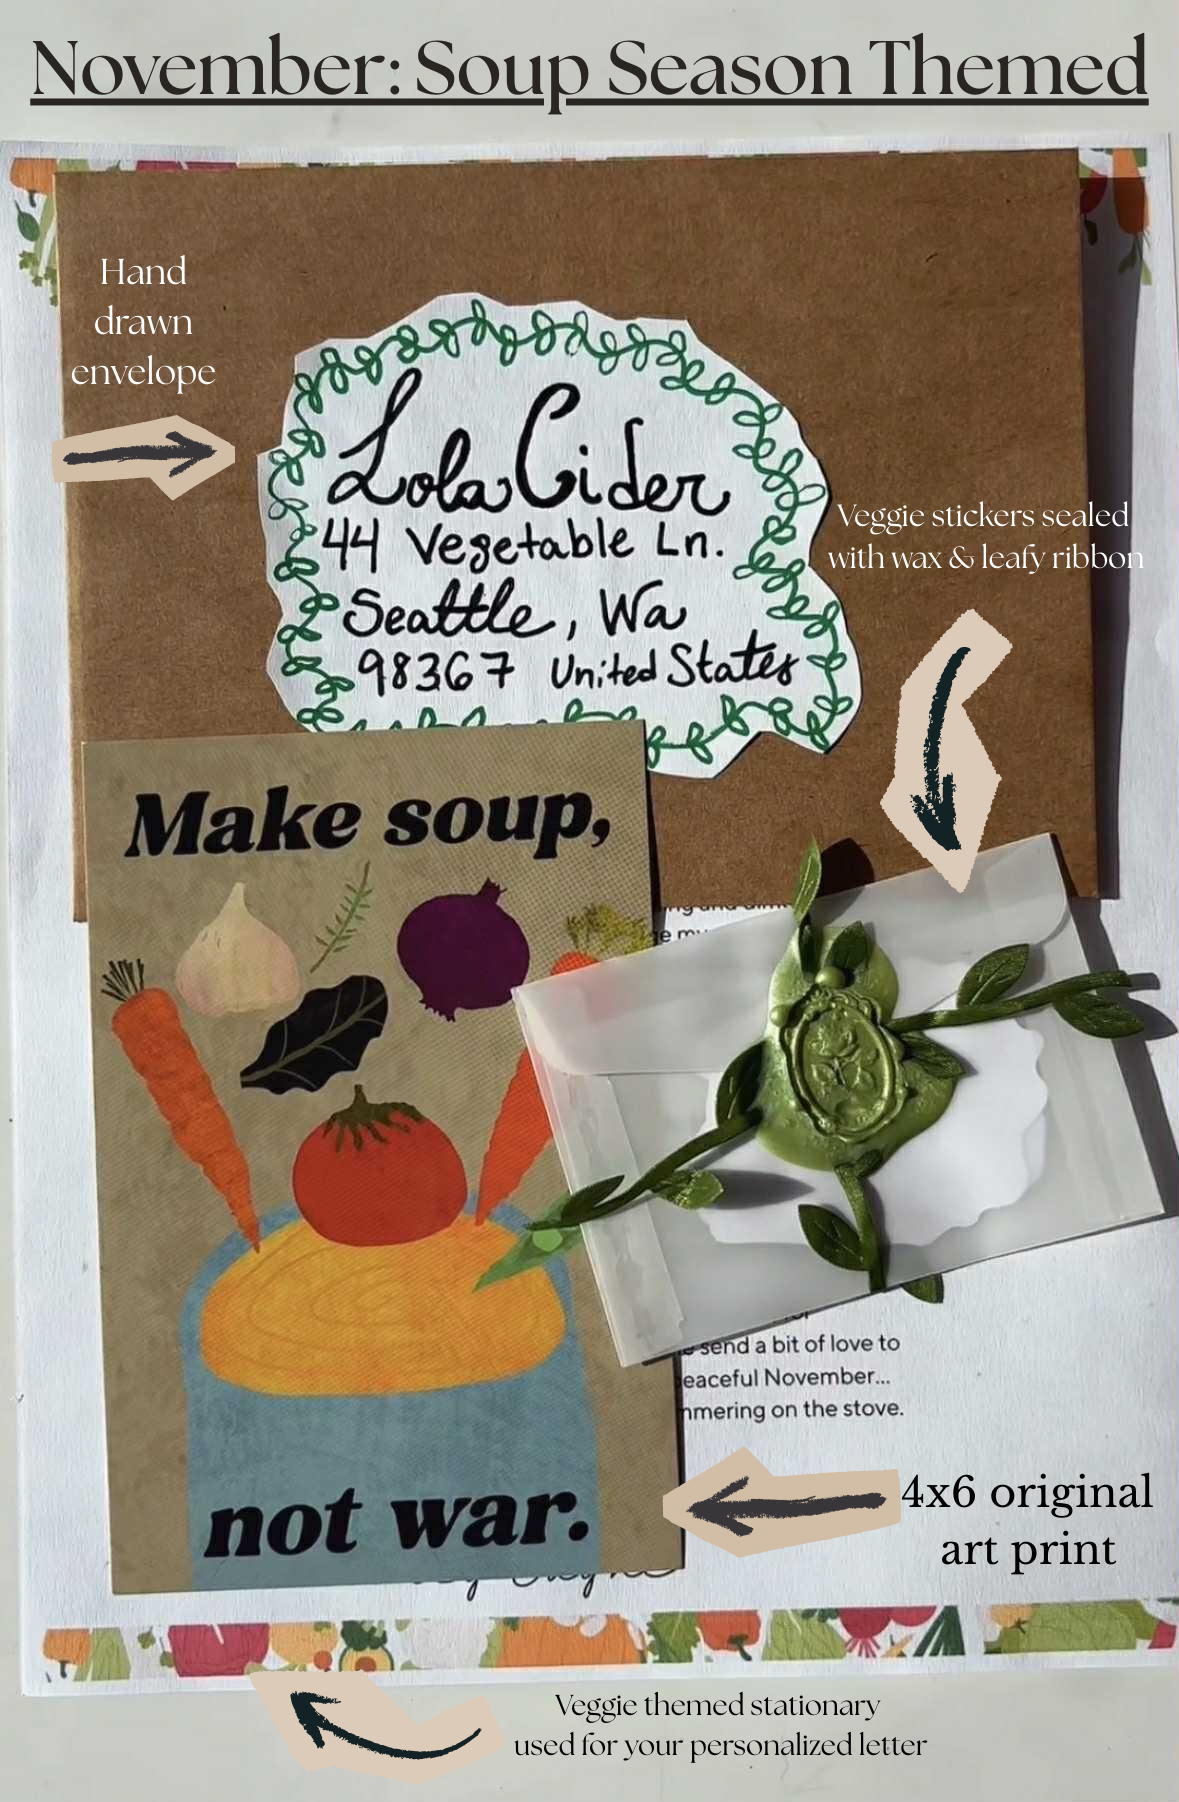 November: Soup Season Themed
Hand
drawn
envelope
Lola Cider
44 Vegetable Ln.
Seattle, Wa
98367 United States
Veggie stickers sealed
with wax & leafy ribbon
Make soup,
not war.
send a bit of love to
November...
on the stove.
4x6 original
art print
Veggie themed stationary
used for your personalized letter